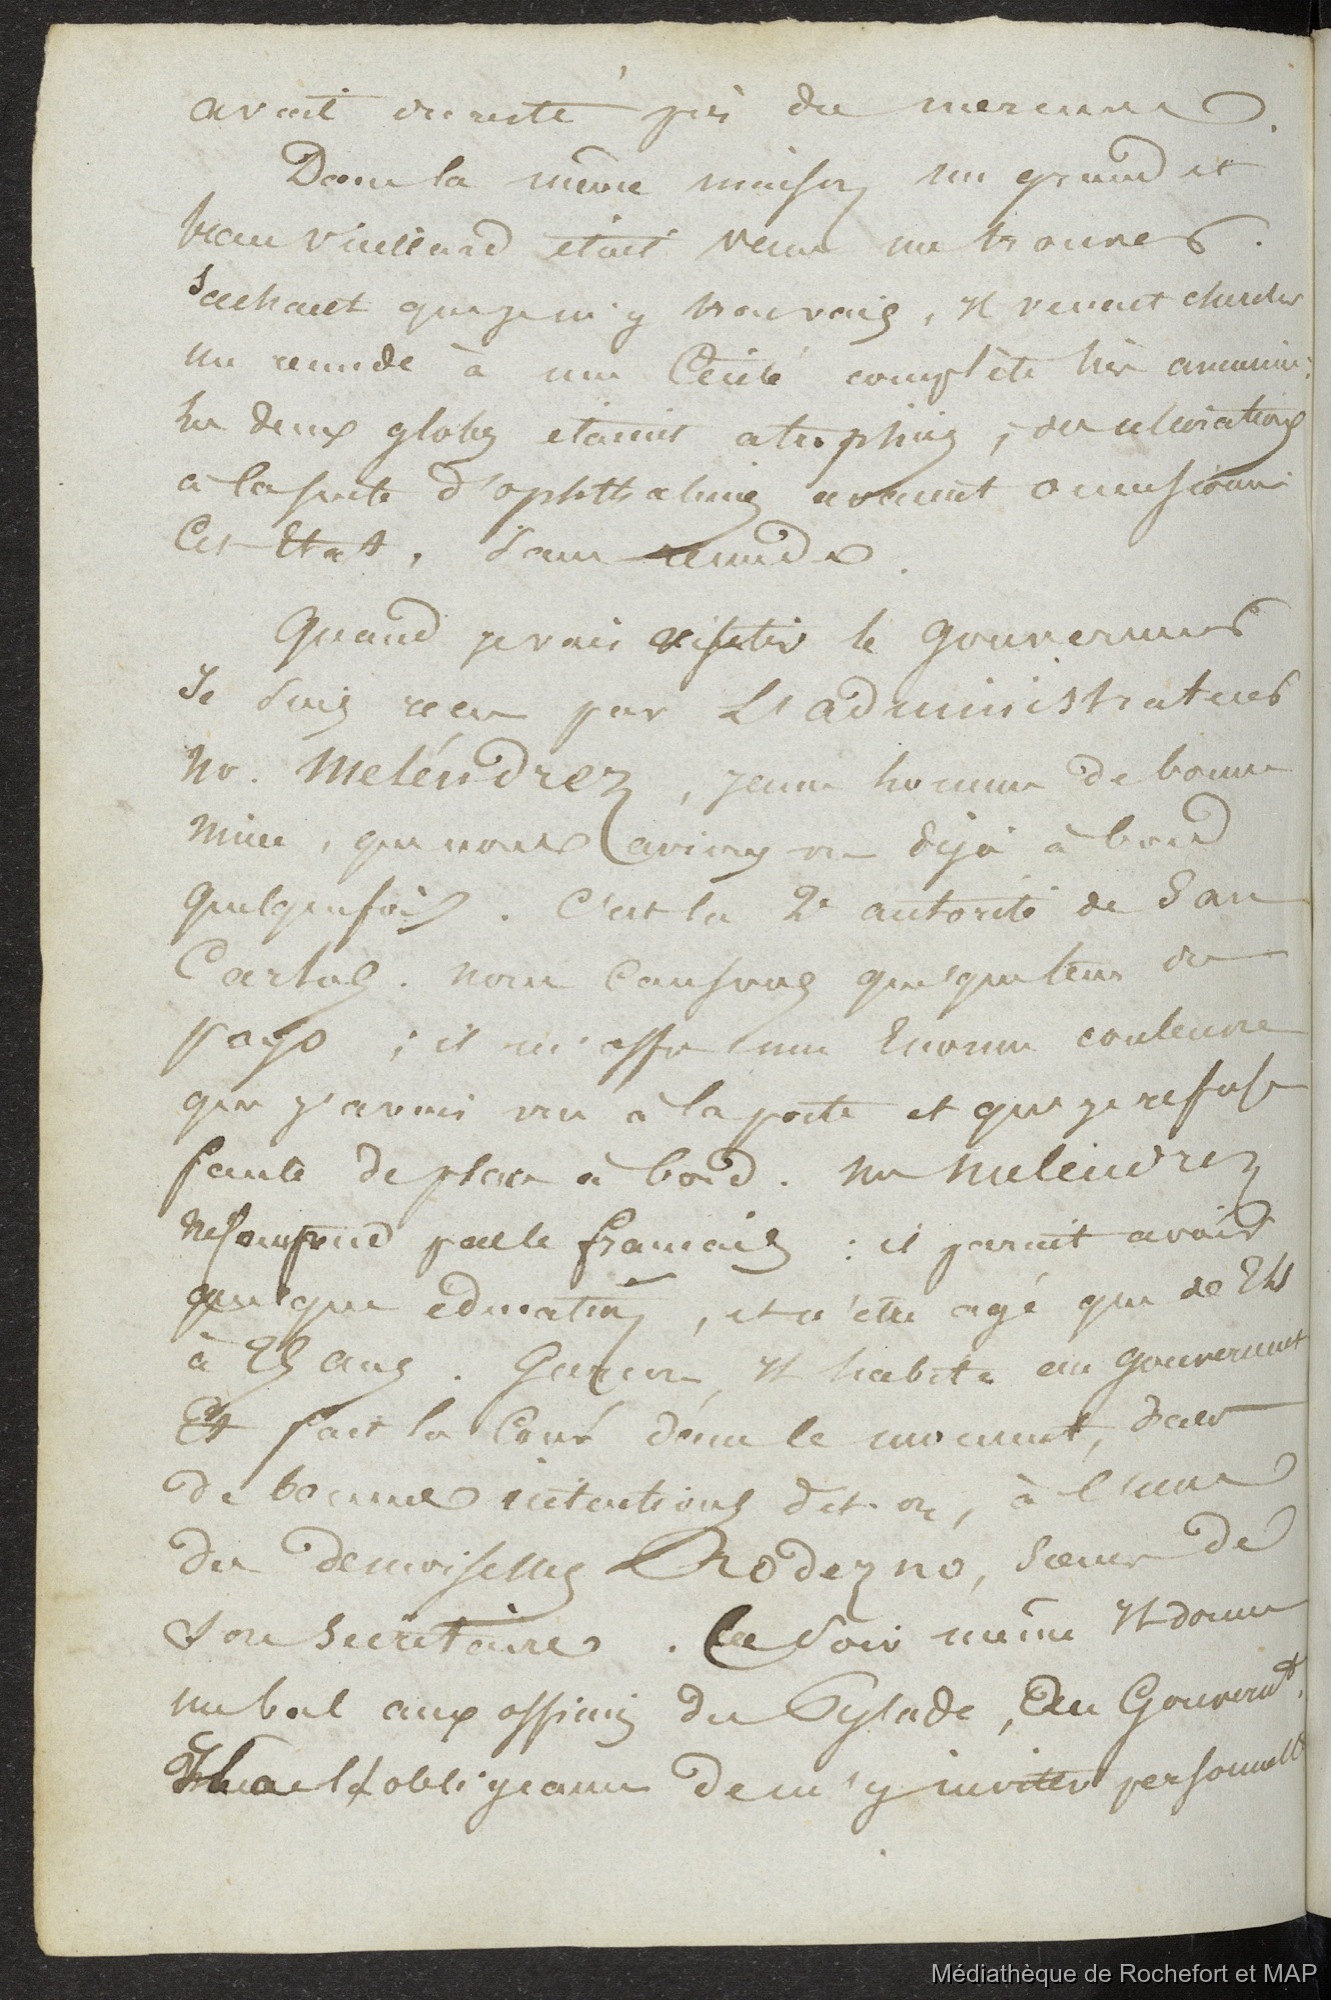 avait du reste pris du mercure.
Dans la même maison un grand et
beau vieillard était venu me trouver.
Sachant que je m'y trouvais, Il venait chercher
un remède à une Cécité complète très ancienne.
les deux globes étaient atrophiés ; des ulcérations
à la suite d'ophthalmies avaient occasionné
Cet Etat, Sans remède.
Quand je vais visiter le gouverneur
Je suis reçu par L'administrateur
Mr. Meléndrez, jeune homme de bonne
mine, que nous avions vu déjà à bord
quelquefois. C'est la 2e autorité de San
Carlos. nous Causons quelque tems du
pays ; il m'offre une Enorme couleuvre
que j'avais vu à la porte et que je refuse
faute de place à bord. Mr Melendrez
ne comprend pas le français : il parait avoir
quelque education, et n'être agé que de
à ans. Garçon, Il habite au gouvernemt
Et fait la Cour dans le moment, dans
de bonnes intentions dit-on, à l'une
des demoiselles Rodezno, Sœur de
Son Secrétaire. Ce Soir même Il donne
un bal aux officiers du Pylade, Au Gouvernt.
Il a l'obligeance de m'y inviter personnellt
Médiathèque de Rochefort et MAP